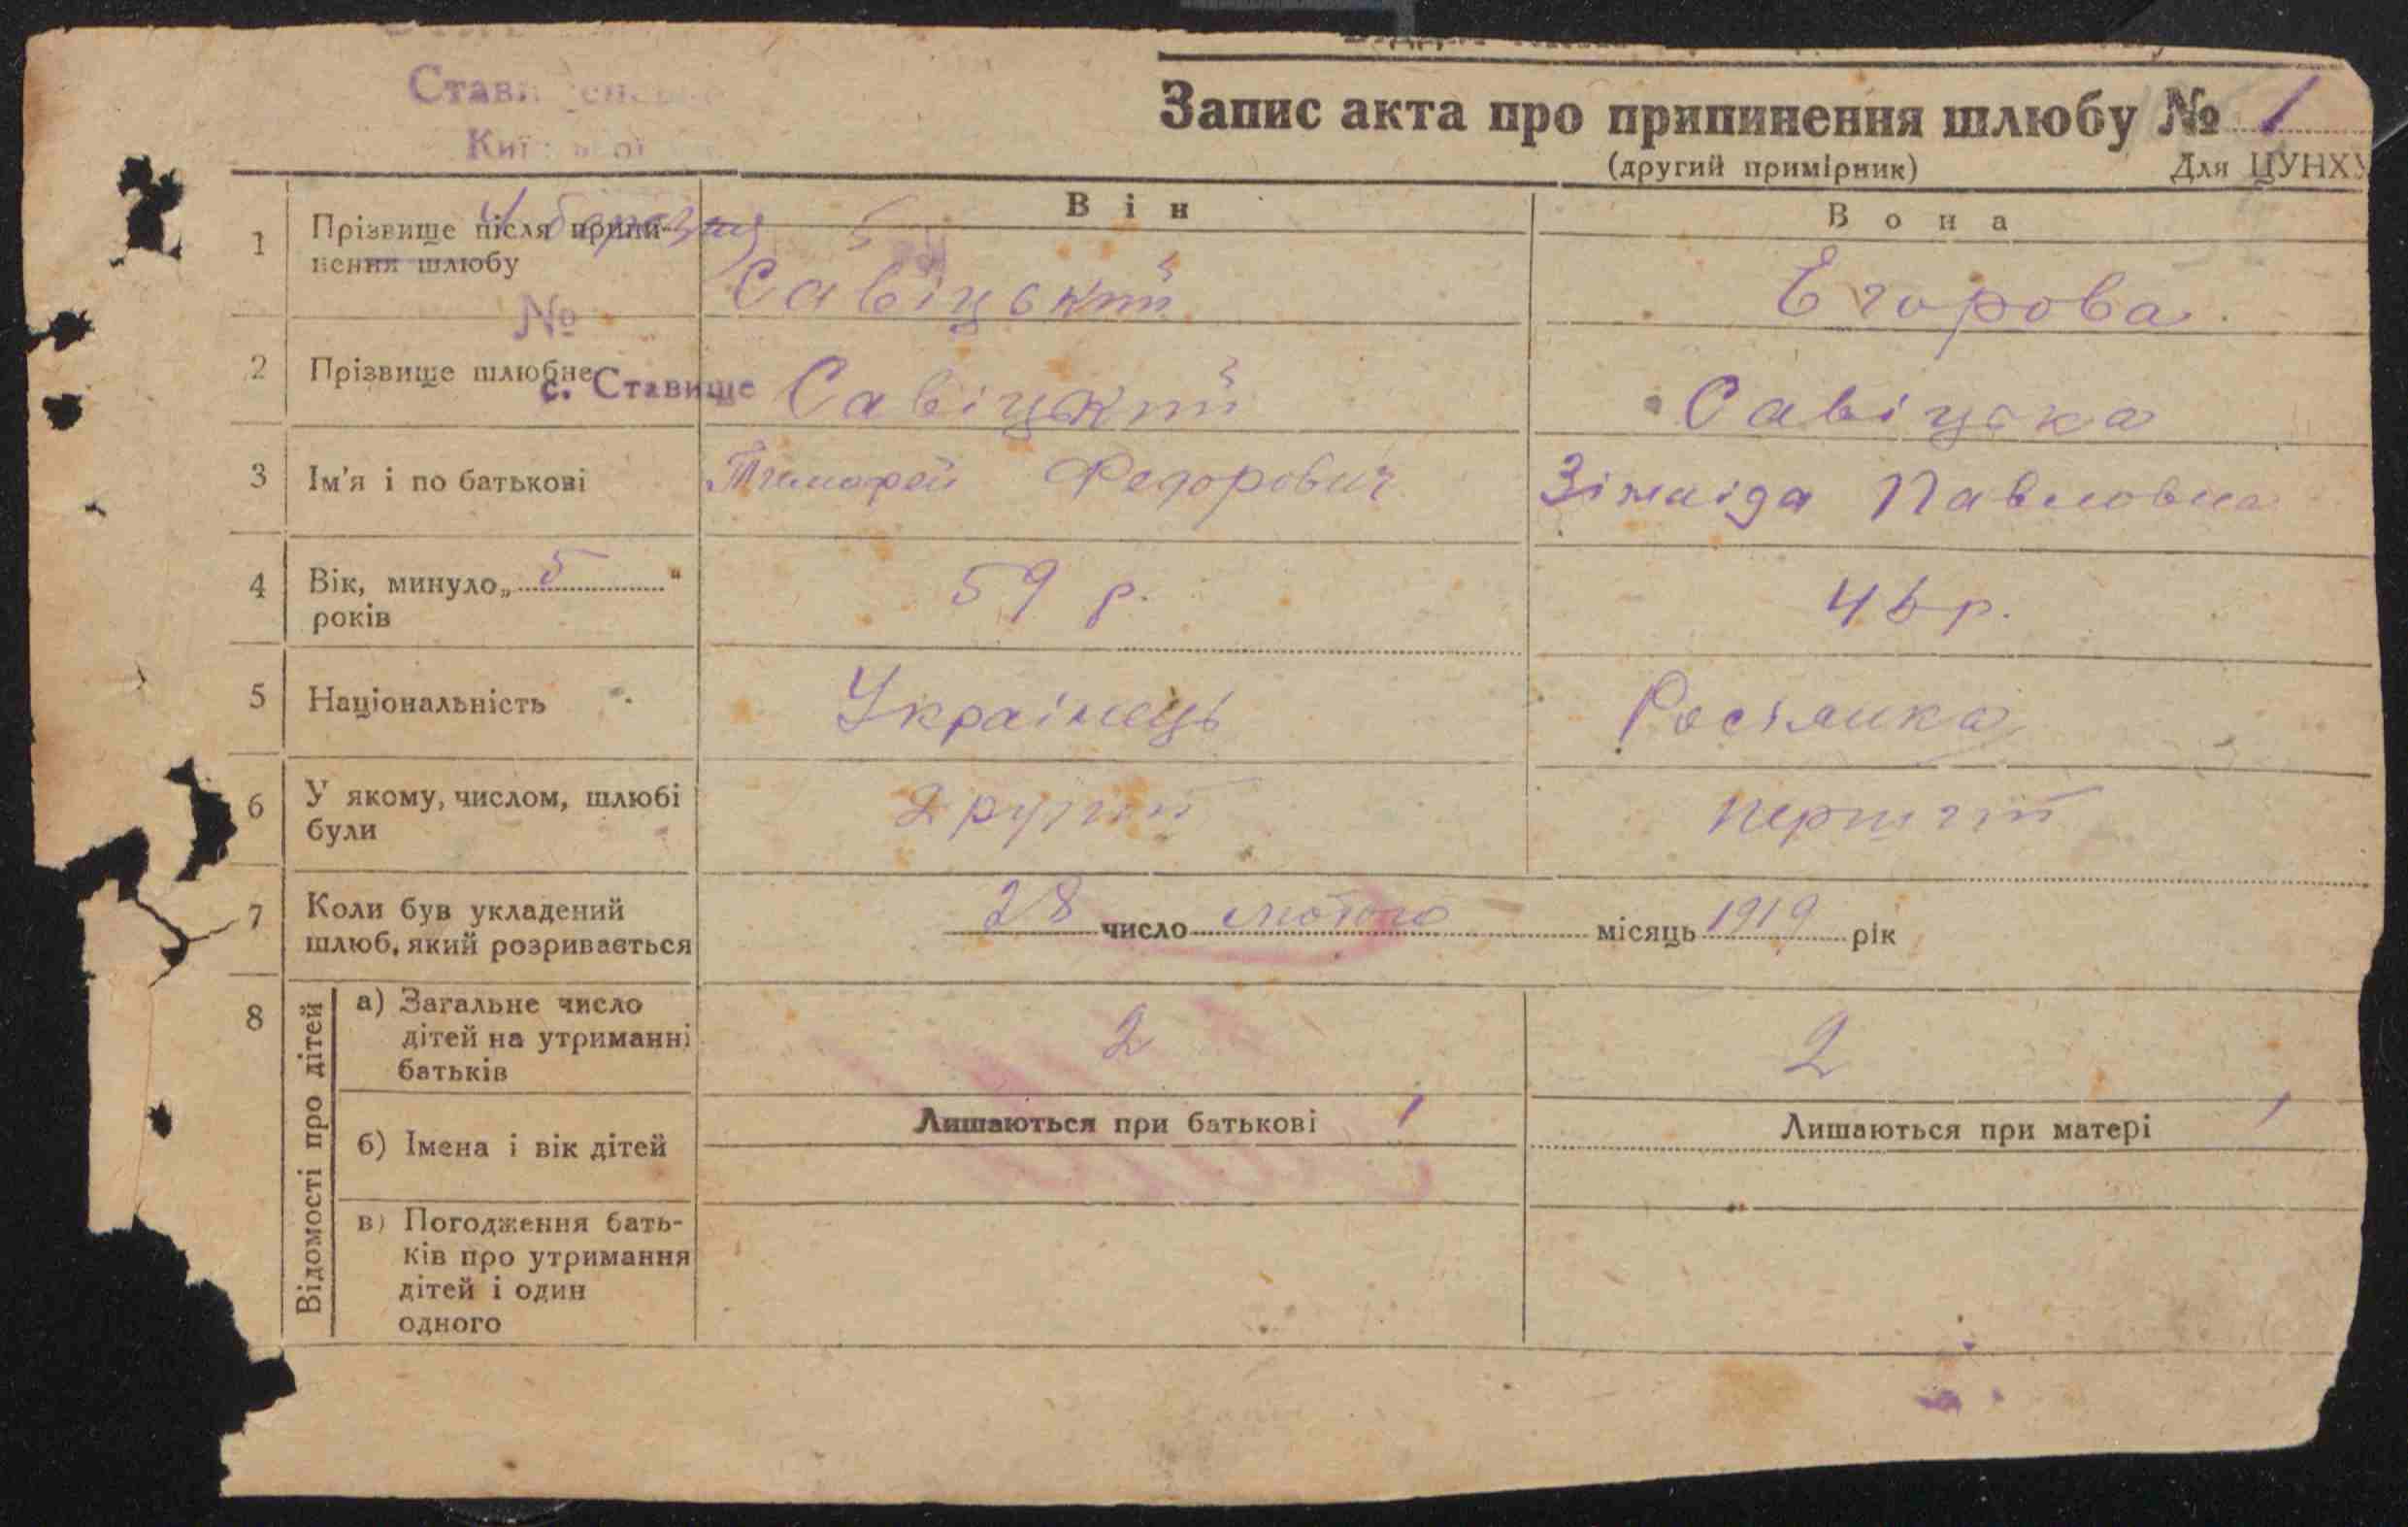 Київ
Запис акта про припинення шлюбу № 1
(другий примірник) Для ЦУНХУ
Він Вона
1 Прізвище після припинення шлюбу Савіцький Егорова
4 березня 5
№
2 Прізвище шлюбне Савіцький Савіцька
с. Ставище
3 Ім'я і по батькові Тимофей Федорович Зінаіда Павловна
4 Вік, минуло „5“ років 59 р. 46 р.
5 Національність Українець Росіянка
6 У якому, числом, шлюбі були другий перший
7 Коли був укладений шлюб, який розривається 28 число лютого місяць 1919 рік
8 Відомості про дітей
а) Загальне число дітей на утриманні батьків 2 2
Лишаються при батькові 1 Лишаються при матері 1
б) Імена і вік дітей
в) Погодження батьків про утримання дітей і один одного